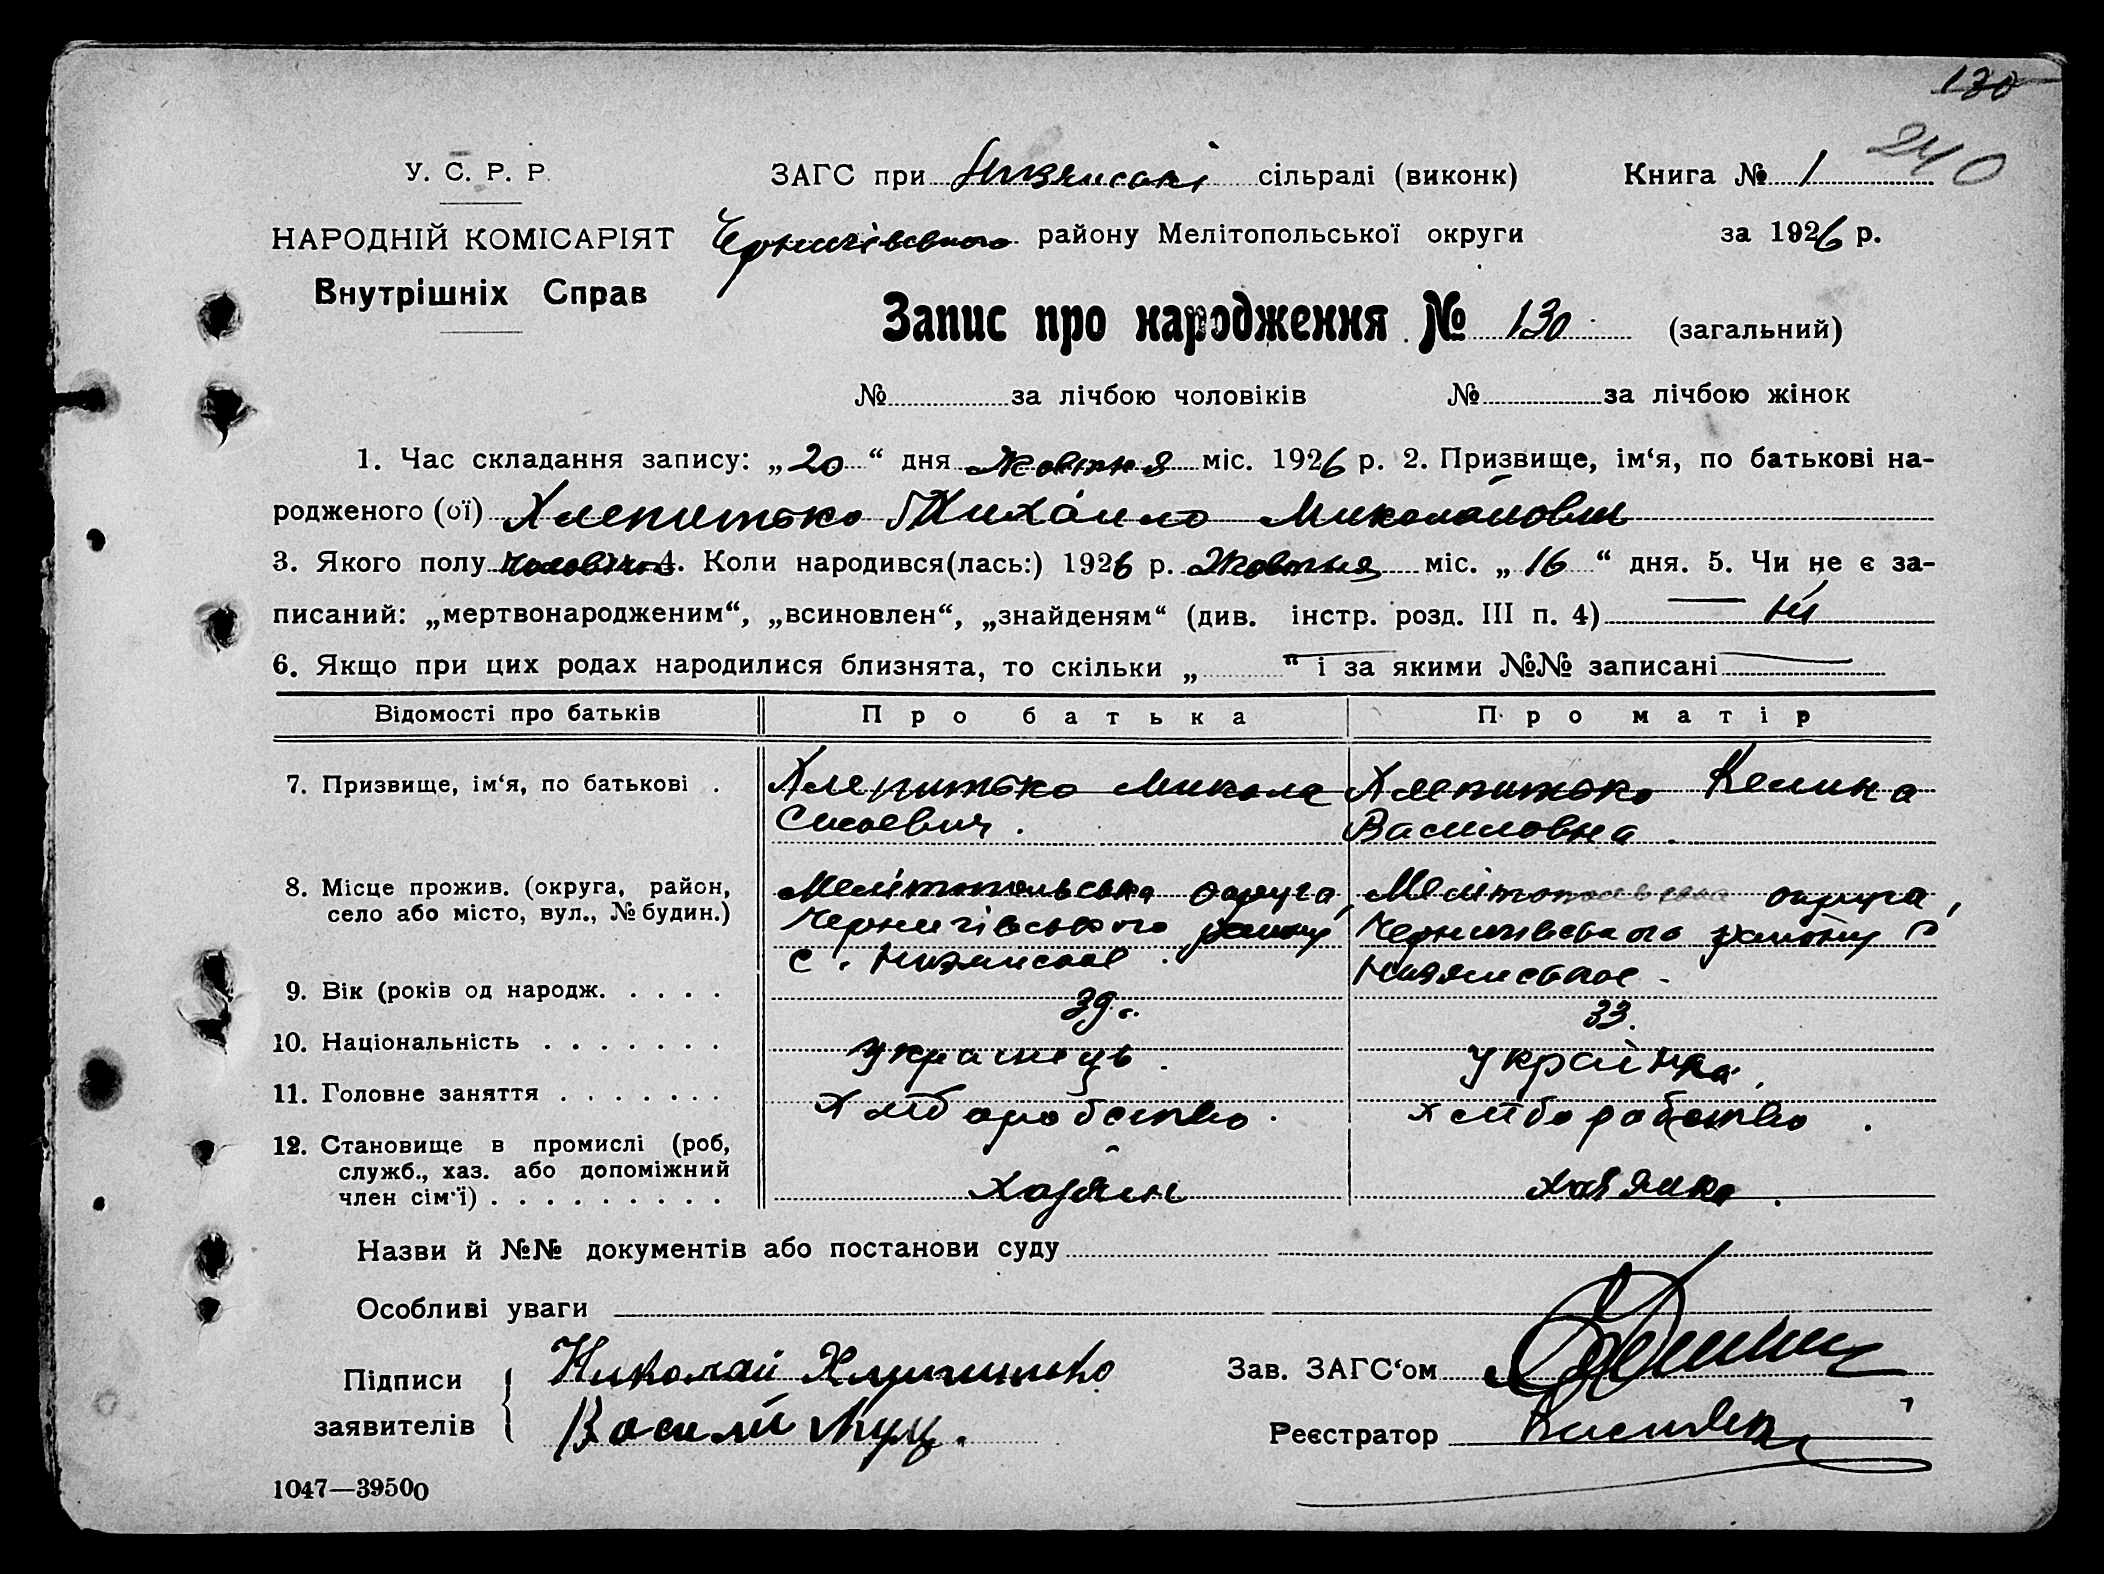 130
240
У. С. Р. Р.
НАРОДНІЙ КОМІСАРІЯТ
Внутрішніх Справ
ЗАГС при сільраді (виконк)
Книга № 1
району Мелітопольської округи
за 1926 р.
Запис про народження № 130 (загальний)
№ за лічбою чоловіків № за лічбою жінок
1. Час складання запису: „20“ дня Жовтня міс. 1926 р. 2. Призвище, ім‘я, по батькові на-
родженого (ої) Хлепитько Михайло Миколайович
3. Якого полу 4. Коли народився(лась:) 1926 р. Жовтня міс. „16“ дня. 5. Чи не є за-
писаний: „мертвонародженим“, „всиновлен“, „знайденям“ (див. інстр. розд. III п. 4) Ні
6. Якщо при цих родах народилися близнята, то скільки „ “ і за якими №№ записані
Відомості про батьків Про батька Про матір
7. Призвище, ім‘я, по батькові . Хлепитько Микола Хлепитько Килина
Сисоевич. Василовна.
8. Місце прожив. (округа, район, Мелітопольська округа, Мелітопольська округа,
село або місто, вул., № будин.) Чернигівського району Чернигівського району с
с.
9. Вік (років од народж. . . . . 39 33.
10. Національність . . . . . . . Украінець. Украінка.
11. Головне заняття . . . . . . . Хліборобство. хліборобство.
12. Становище в промислі (роб,
служб., хаз. або допоміжний
член сім‘ї) . . . . . . . . . Хазяін хазяйка.
Назви й №№ документів або постанови суду
Особливі уваги
Підписи Николай Хлипитько
заявителів Василий
Зав. ЗАГС‘ом
Реєстратор
1047—39500